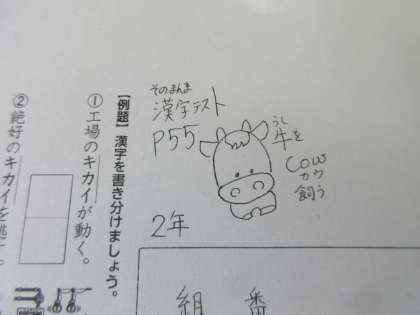 【例題】漢字を書き分けましょう。
①工場のキカイが動く。
②絶好のキカイを逃
そのまんま
漢字テスト
P55
うし
牛を
cow
カウ
飼う
2年
組 番